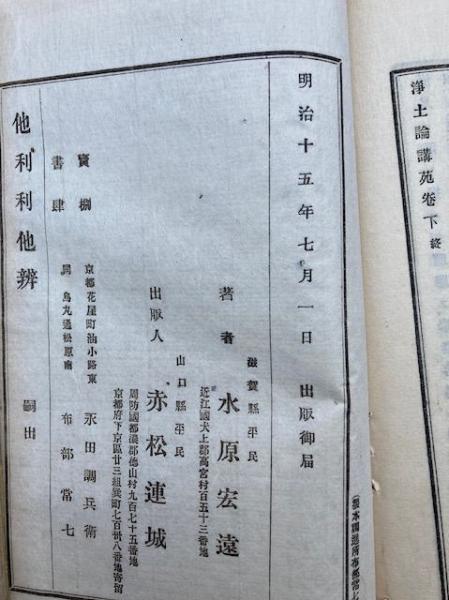 淨土論講苑卷下 終
明治十五年七月一日 出版御届
滋賀縣平民
著者 水原宏遠
近江國犬上郡高宮村百五十三番地
山口縣平民
出版人 赤松連城
周防國都濃郡徳山村九百七十五番地
京都府下京區廿三組巽町七百卅八番地寄留
賣捌
書肆
京都花屋町油小路東 永田調兵衛
同 烏丸通松原南 布部常七
他利利他辨 嗣出